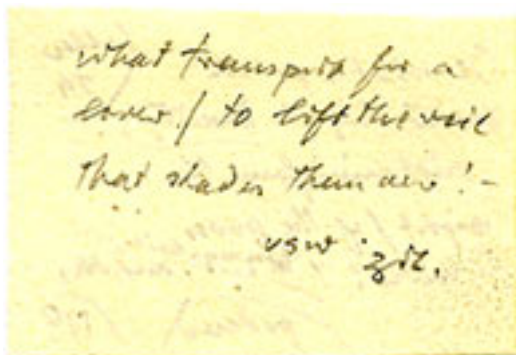 what transport for a
lover / to lift the veil
that shades them
usw zit.